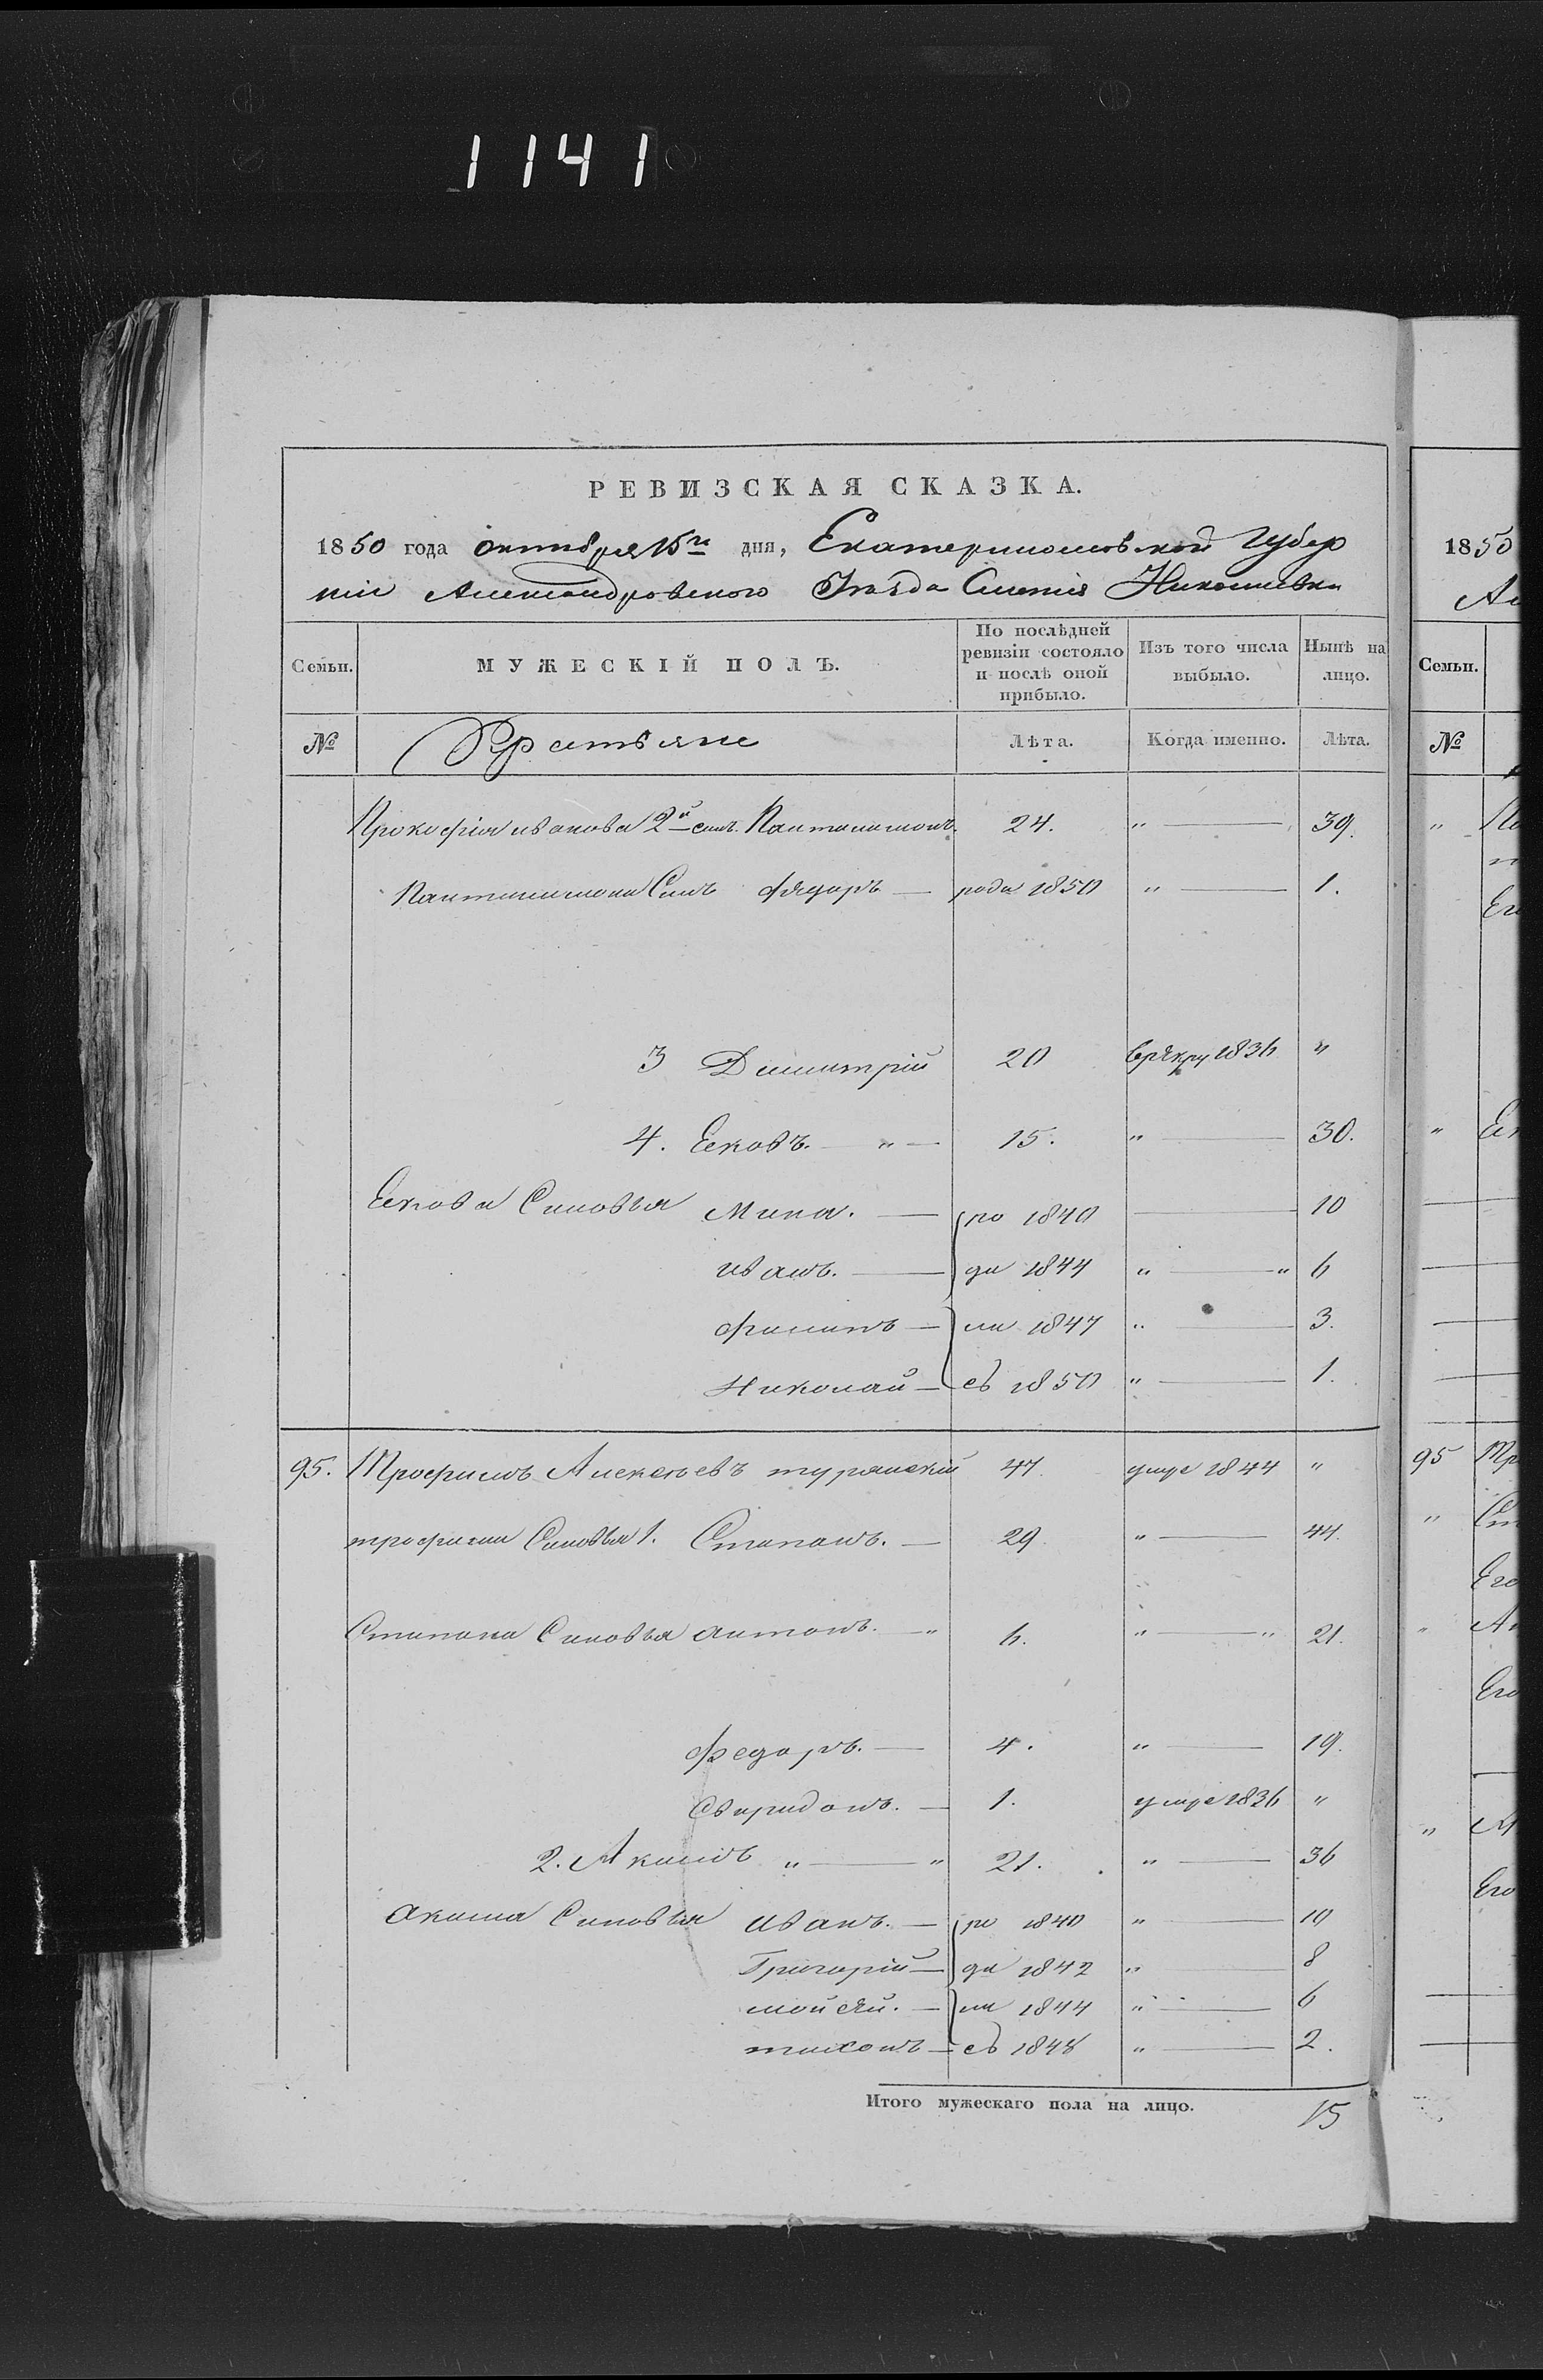 1141
РЕВИЗСКАЯ СКАЗКА.
1850 года октября 15го дня, Екатеринославской Губер
ніи Александровского Уезда Николаевки
Семьи. МУЖЕСКІЙ ПОЛЪ. По послѣдней ревизіи состояло и послѣ оной прибыло. Изъ того числа выбыло. Нынѣ на лицо.
№ Крестьяне Лѣта. Когда именно. Лѣта.
Прокофія иванова 2й сынъ Пантелимонъ. 24. " — 39.
Пантилимона Сынъ Фядоръ — рода 1850 " — 1.
3 Димитрій 20 врѣкру 1836 "
4. Ековъ. — " — 15. " — 30.
Екова Синовья Мина. — ро 1840 — 10
иванъ. — ди 1844 " — " 6
Филипъ — ли 1847 " — 3.
Николай — сь 1850 " — 1.
95. Трофимъ Алексѣевъ турянскій 47. умре 1844 "
трофима Синовья 1. Степанъ. — 29. " — 44.
Степана Синовья антонъ. — " 6. " — " 21.
Федоръ. — 4. " — 19.
Свиридонъ. — 1. умре 1836 "
2. Акимъ " — " 21. " — 36
акима Синовья иванъ. — ро 1840 " — 10
Григорій — ди 1842 " — 8
мойсѣй. — ли 1844 " — 6
тихонъ — сь 1848 " — 2.
Итого мужескаго пола на лицо. 15
1850
Семьи.
№
95